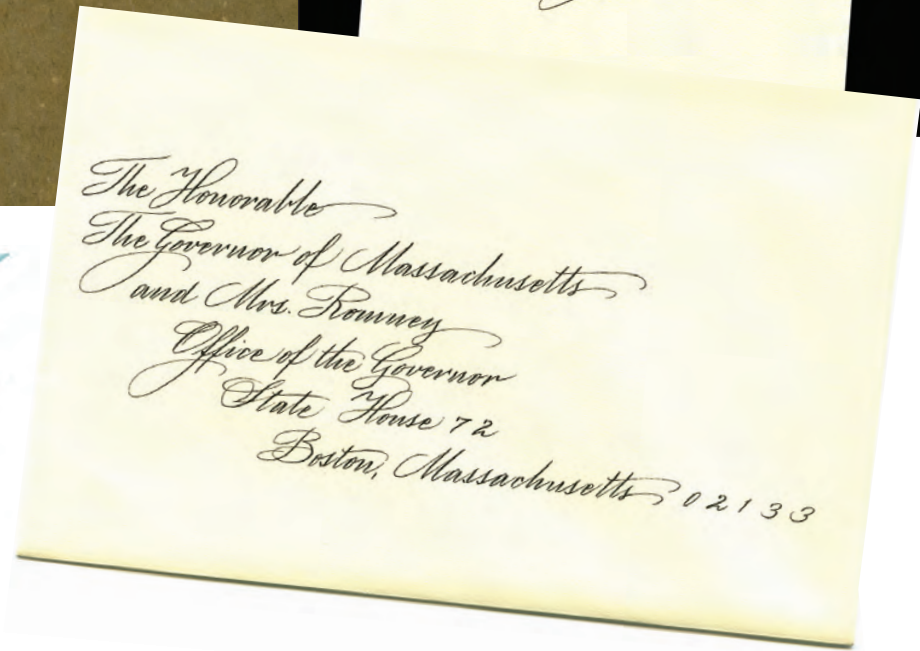 The Honorable
The Governor of Massachusetts
and Mrs. Romney
Office of the Governor
State House 72
Boston, Massachusetts 02133